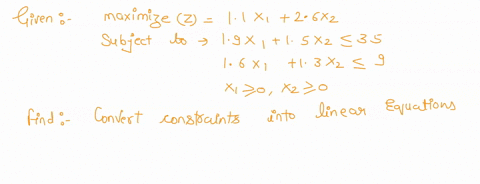 Given :- maximize (Z) = 1.1 x₁ + 2.6x₂
Subject to → 1.9x₁ + 1.5x₂ ≤ 35
1.6x₁ + 1.3x₂ ≤ 9
x₁ ≥ 0, x₂ ≥ 0
Find :- Convert constraints into linear Equations